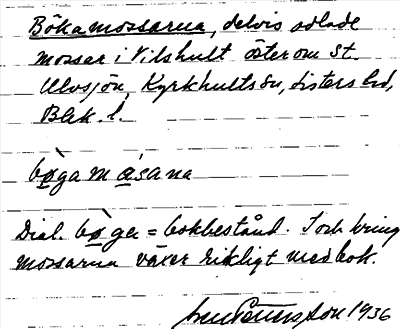 Bökamossarna, delvis odlade
mossar i Vilshult öster om St.
Ulvsjön, Kyrkhults sn, Listers hd,
Blek. l.
bøga måsana
Dial. bøga = bokbestånd. I och kring
mossarna växer rikligt med bok.
Pettersson 1936